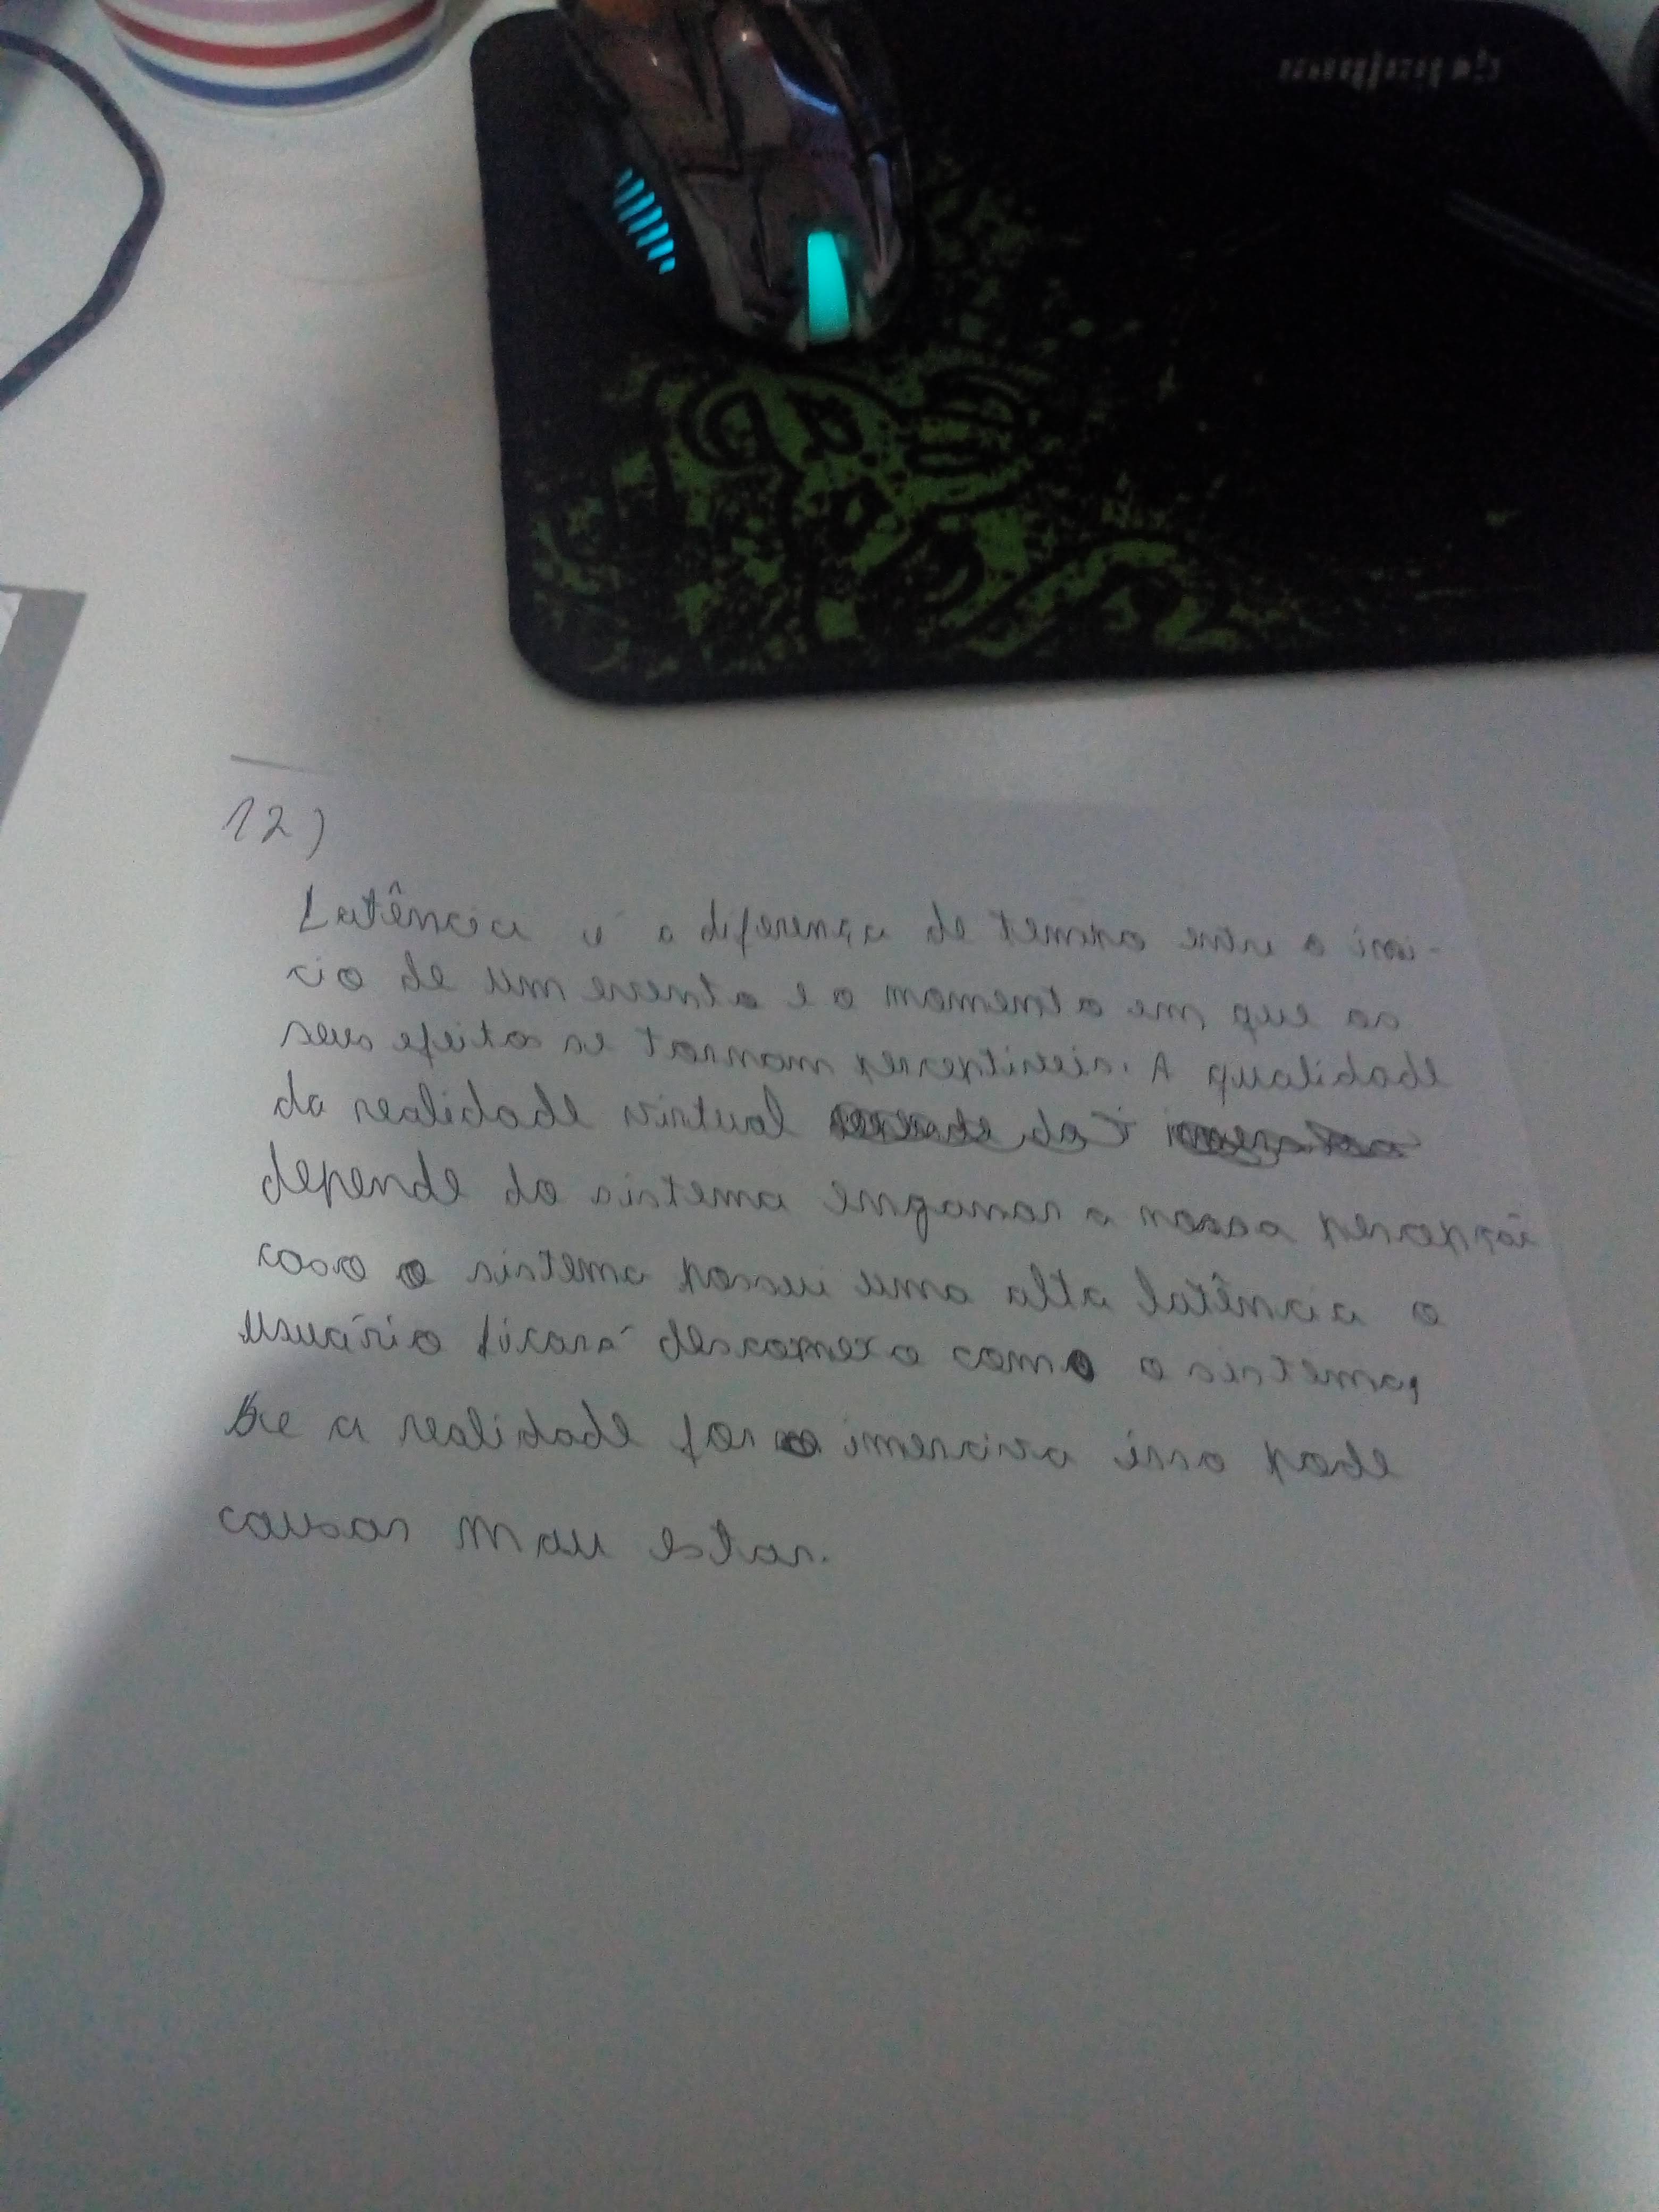 12)
Latência é a diferença de tempo entre o iní-
cio de um evento e o momento em que os
seus efeitos se tornam perceptíveis. A qualidade
da realidade virtual
depende do sistema enganar a nossa percepção
caso o sistema possui uma alta latência o
usuário ficará desconexo com o sistema,
Se a realidade for imersiva isso pode
causar mau estar.